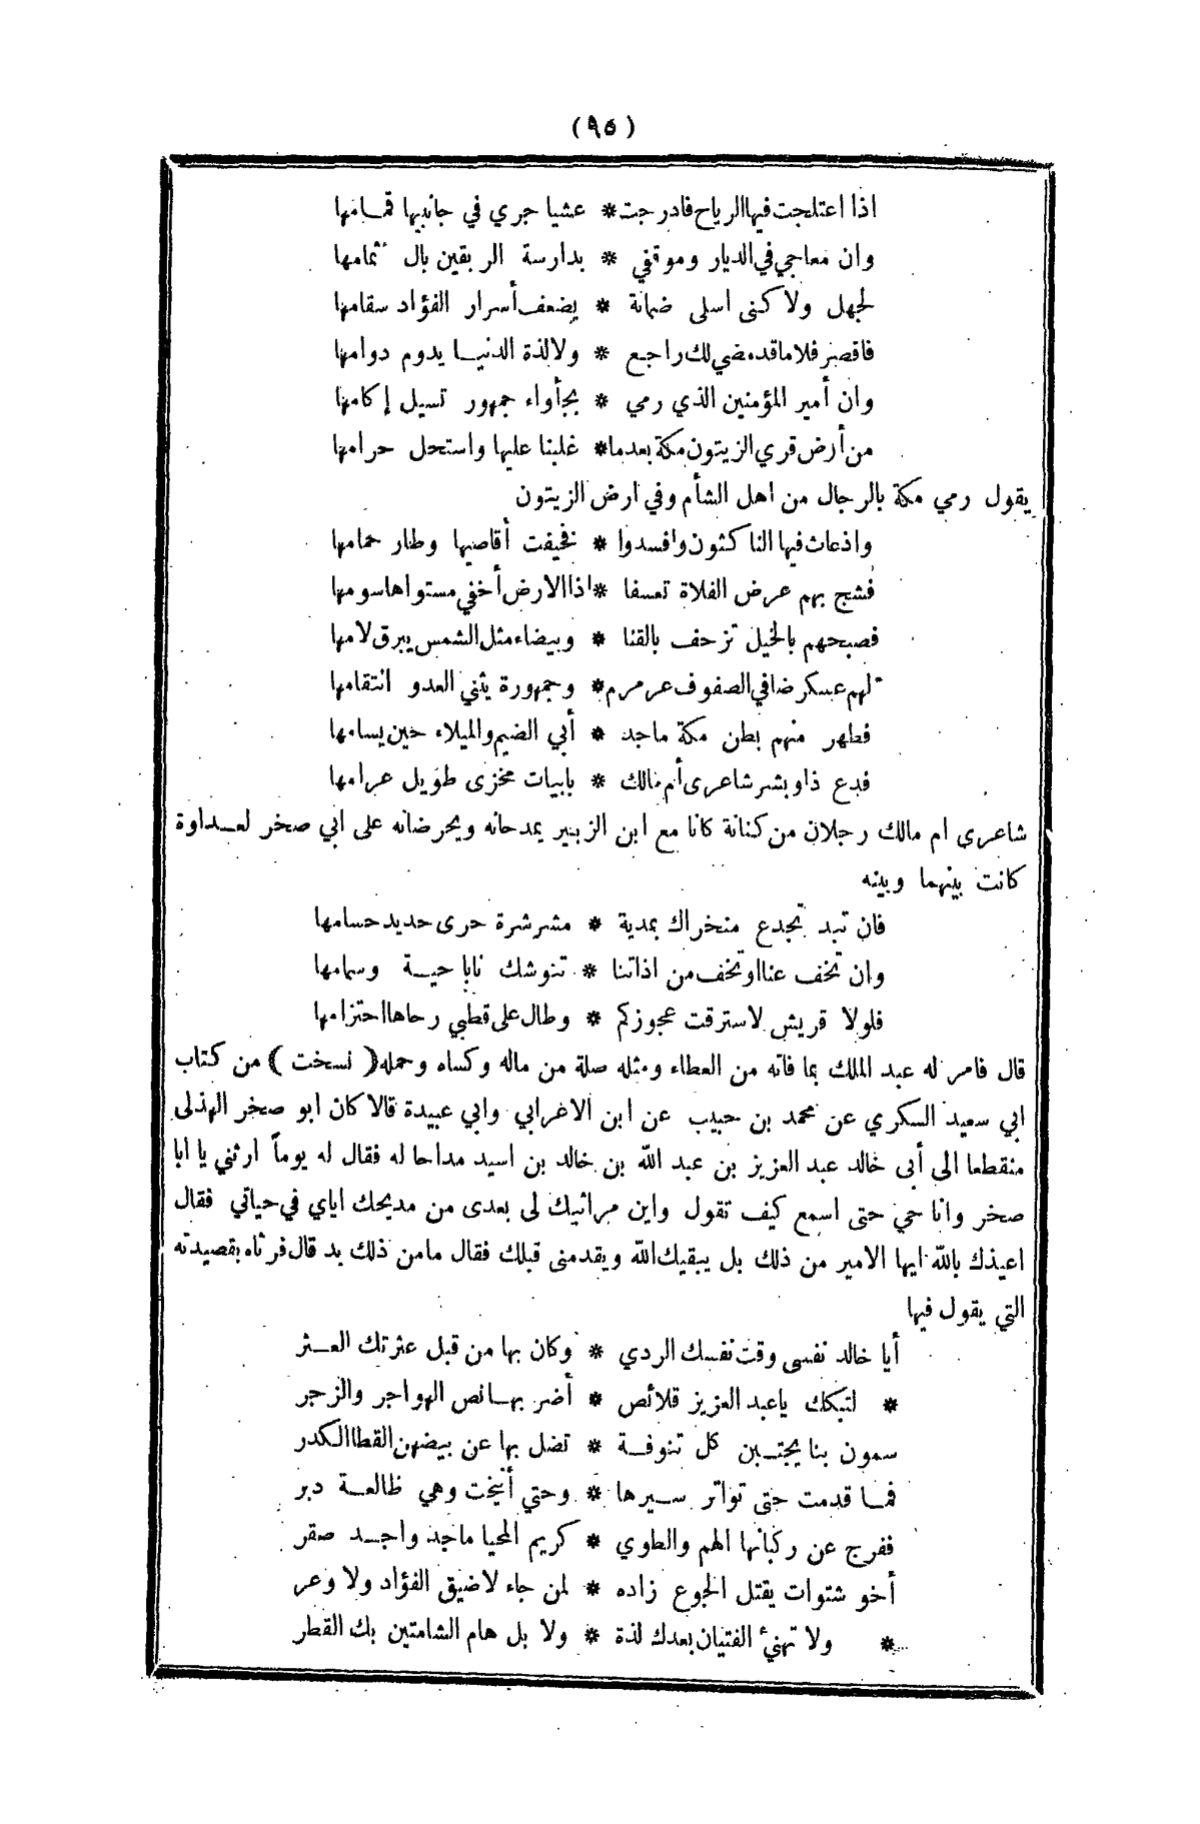 (٩٥)
اذا اعتلجت فيها الرياح فادرجت * عشيا جرى في جانبيها قمامها
وان معاجي في الديار وموقفي * بدارسة الربقين بال ثمامها
لجهل ولاكنى اسلى ضمانة * يضعف أسرار الفؤاد سقامها
فاقصر فلا ماقد مضي لك راجع * ولا لذة الدنيـا يدوم دوامها
وان أمير المؤمنين الذي رمي * بجأواء جمهور تسيل إكامها
من أرض قري الزيتون مكة بعدما * غلبنا عليها واستحل حرامها
يقول رمي مكة بالرجال من اهل الشأم وفي ارض الزيتون
واذعاث فيها الناكثون وافسدوا * فخيفت أقاصيها وطار حمامها
فشج بهم عرض الفلاة تعسفا * اذا الارض أخفي مستواها سومها
فصبحهم بالخيل تزحف بالقنا * وبيضاء مثل الشمس يبرق لامها
لهم عسكر ضافي الصفوف عرمرم * وجمهورة يثني العدو انتقامها
فطهر منهم بطن مكة ماجد * أبي الضيم والميلاء حين يسامها
فدع ذا وبشر شاعرى أم مالك * بابيات مخزى طويل عرامها
شاعرى ام مالك رجلان من كنانة كانا مع ابن الزبير يمدحانه ويحرضانه على ابي صخر لعـداوة
كانت بينهما وبينه
فان تبد تجدع منخراك بمدية * مشرشرة حرى حديد حسامها
وان تخف عنا اوتخف من اذاتنا * تنوشك نابا حيـة وسمامها
فلولا قريش لاسترقت عجوزكم * وطال على قطبي رحاها احتزامها
قال فامر له عبد الملك بما فاته من العطاء ومثله صلة من ماله وكساه وحمله ( نسخت ) من كتاب
ابي سعيد السكري عن محمد بن حبيب عن ابن الاعرابي وابي عبيدة قالا كان ابو صخر الهذلى
منقطعا الى أبى خالد عبد العزيز بن عبد الله بن خالد بن اسيد مداحا له فقال له يوماً ارثني يا ابا
صخر وانا حي حتى اسمع كيف تقول واين مراثيك لى بعدى من مديحك اياي في حياتي فقال
اعيذك بالله ايها الامير من ذلك بل يبقيك الله ويقدمنى قبلك فقال مامن ذلك بد قال فرثاه بقصيدته
التي يقول فيها
أيا خالد نفسى وقت نفسك الردي * وكان بها من قبل عثرتك العـثر
* لتبكك ياعبد العزيز قلائص * أضر بهـا نص الهواجر والزجر
سمون بنا يجتـبن كل تنوفـة * تضل بها عن بيضهن القطا الكدر
فمـا قدمت حتى تواتر سـيرها * وحتي أنيخت وهي ظالعـة دبر
ففرج عن ركبانها الهم والطوي * كريم المحيا ماجد واجـد صقر
أخو شتوات يقتل الجوع زاده * لمن جاء لا ضيق الفؤاد ولا وعر
* ولا تهنئ الفتيان بعدك لذة * ولا بل هام الشامتين بك القطر